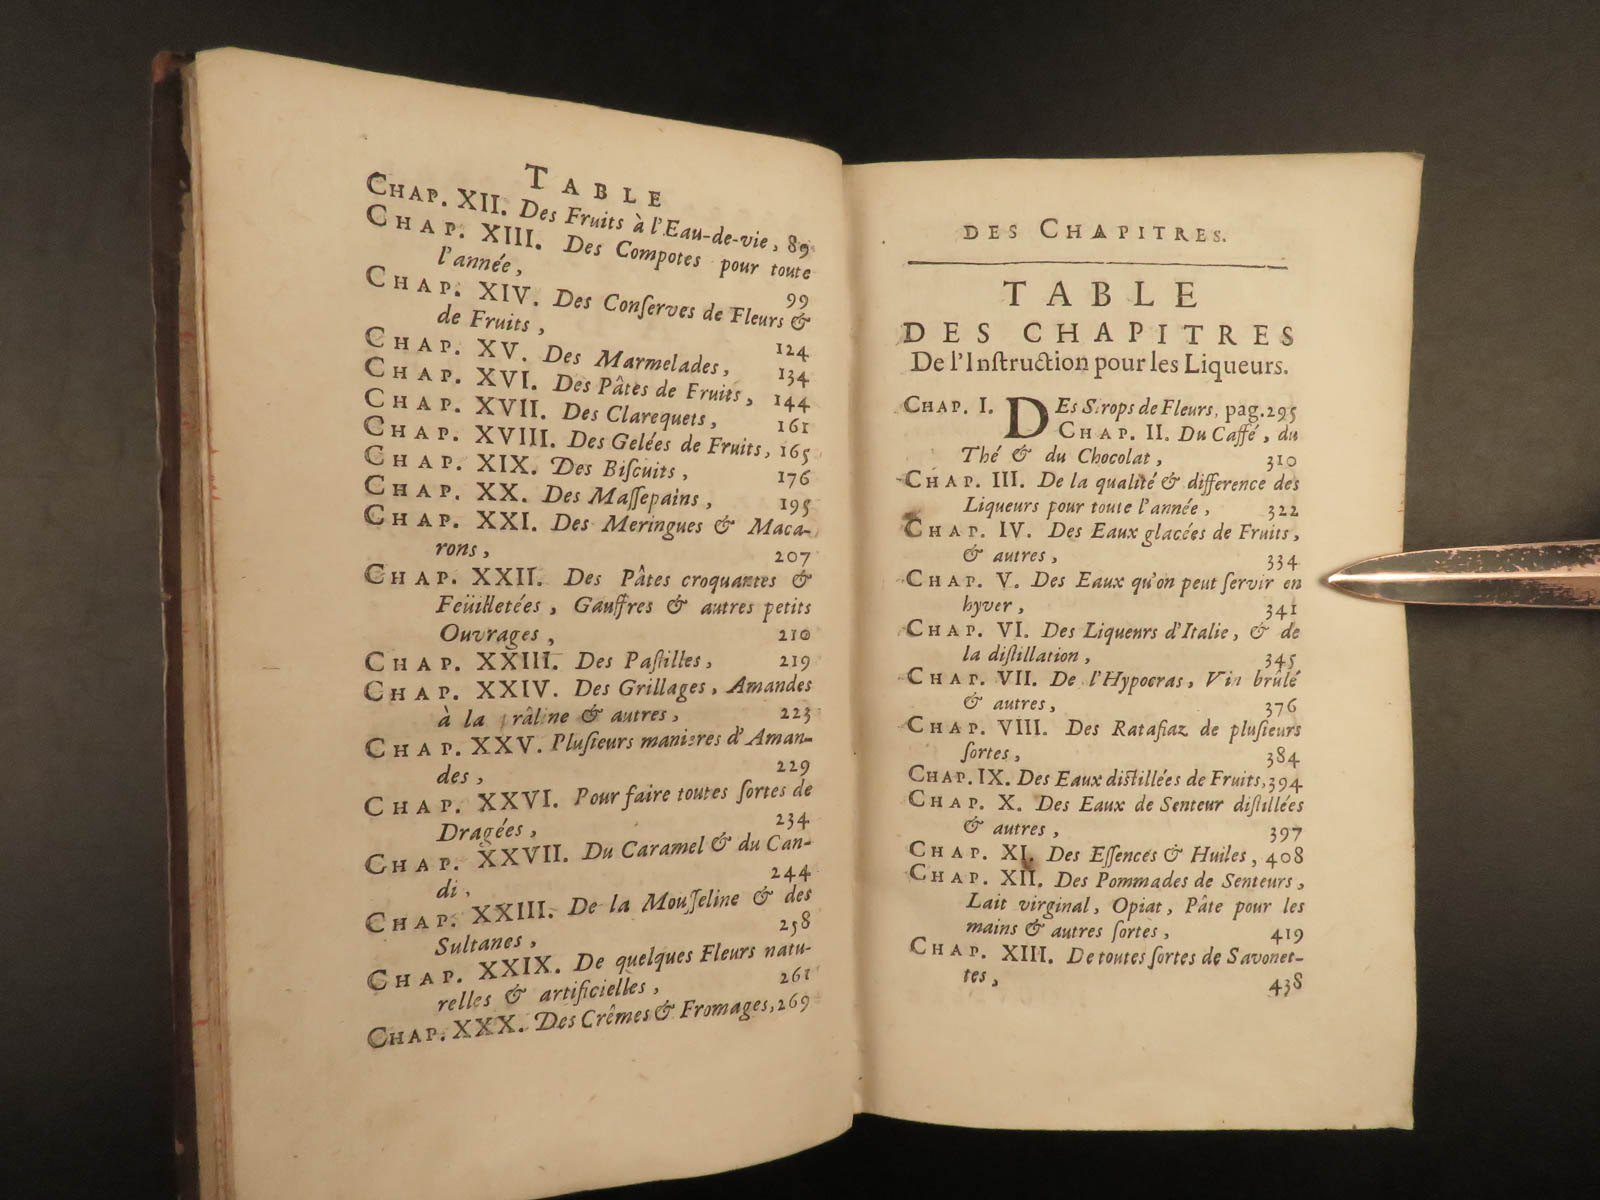 TABLE
CHAP. XII. Des Fruits à l'Eau-de-vie, 89
CHAP. XIII. Des Compotes pour toute
l'année, 99
CHAP. XIV. Des Conſerves de Fleurs &
de Fruits, 124
CHAP. XV. Des Marmelades, 134
CHAP. XVI. Des Pâtes de Fruits, 144
CHAP. XVII. Des Clarequets, 161
CHAP. XVIII. Des Gelées de Fruits, 165
CHAP. XIX. Des Biſcuits, 176
CHAP. XX. Des Maſſepains, 195
CHAP. XXI. Des Meringues & Maca-
rons, 207
CHAP. XXII. Des Pâtes croquantes &
Feüilletées, Gauffres & autres petits
Ouvrages, 210
CHAP. XXIII. Des Paſtilles, 219
CHAP. XXIV. Des Grillages, Amandes
à la râline & autres, 223
CHAP. XXV. Pluſieurs manieres d'Aman-
des, 229
CHAP. XXVI. Pour faire toutes ſortes de
Dragées, 234
CHAP. XXVII. Du Caramel & du Can-
di, 244
CHAP. XXIII. De la Mouſſeline & des
Sultanes, 258
CHAP. XXIX. De quelques Fleurs natu-
relles & artificielles, 261
CHAP. XXX. Des Crêmes & Fromages, 269
DES CHAPITRES.
TABLE
DES CHAPITRES
De l'Inſtruction pour les Liqueurs.
CHAP. I. DEs Sirops de Fleurs, pag. 295
CHAP. II. Du Caffé, du
Thé & du Chocolat, 310
CHAP. III. De la qualité & difference des
Liqueurs pour toute l'année, 322
CHAP. IV. Des Eaux glacées de Fruits,
& autres, 334
CHAP. V. Des Eaux qu'on peut ſervir en
hyver, 341
CHAP. VI. Des Liquenrs d'Italie, & de
la diſtillation, 345
CHAP. VII. De l'Hypocras, Vin brûlé
& autres, 376
CHAP. VIII. Des Ratafiaz de pluſieurs
ſortes, 384
CHAP. IX. Des Eaux diſtillées de Fruits, 394
CHAP. X. Des Eaux de Senteur diſtillées
& autres, 397
CHAP. XI. Des Eſſences & Huiles, 408
CHAP. XII. Des Pommades de Senteurs,
Lait virginal, Opiat, Pâte pour les
mains & autres ſortes, 419
CHAP. XIII. De toutes ſortes de Savonet-
tes, 438